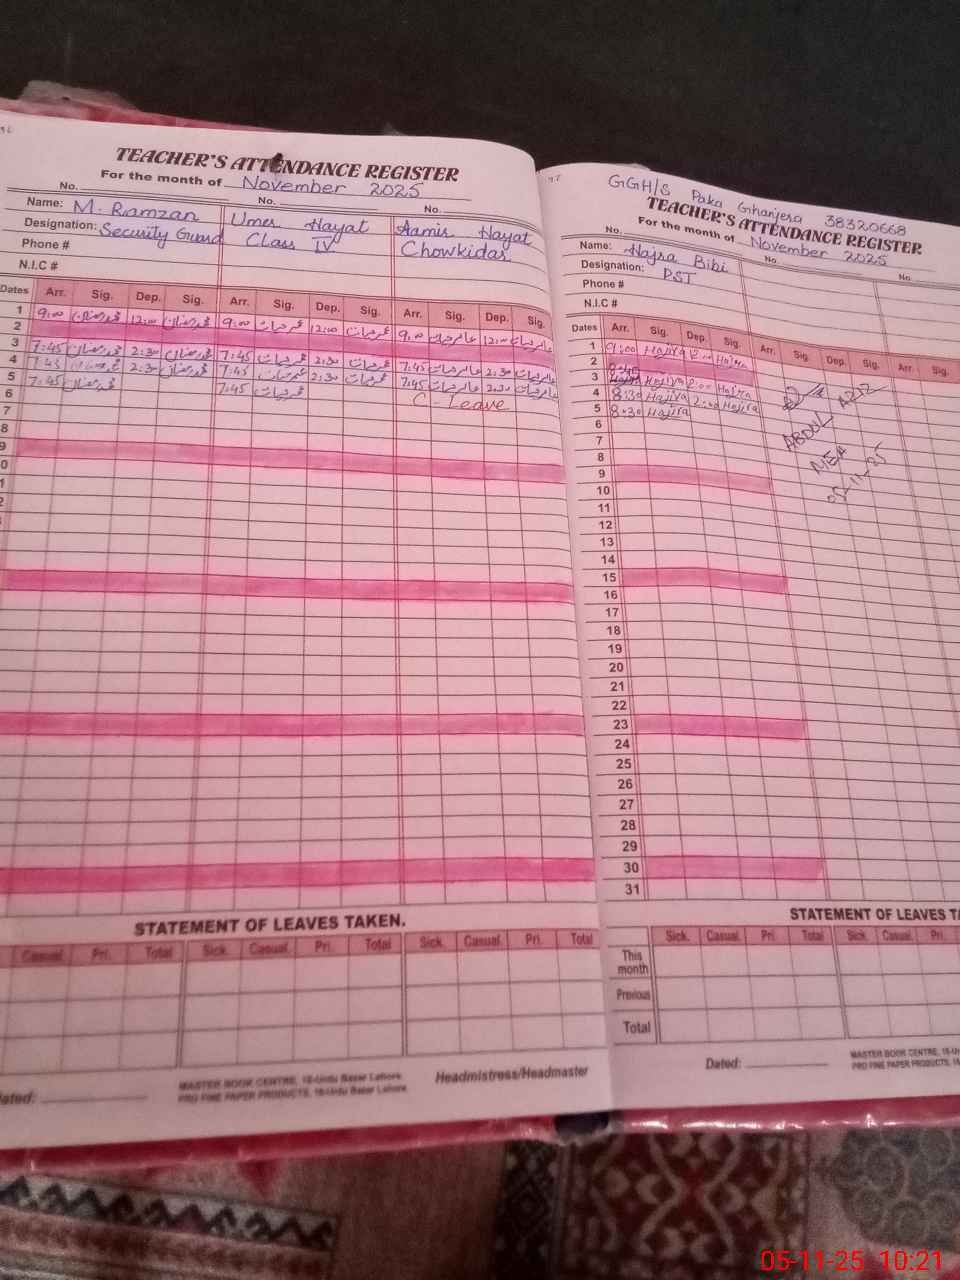 TEACHER'S ATTENDANCE REGISTER
For the month of November 2025
No. No. No.
Name: M. Ramzan Umer Hayat Aamir Hayat
Designation: Security Guard Class IV Chowkidar
Phone #
N.I.C #
Dates Arr. Sig. Dep. Sig. Arr. Sig. Dep. Sig. Arr. Sig. Dep. Sig.
1 9:00 محمد رمضان 12:00 محمد رمضان 9:00 عمر حیات 12:00 عمر حیات 9:00 عامر حیات 12:00 عامر حیات
2
3 7:45 محمد رمضان 2:30 محمد رمضان 7:45 عمر حیات 2:30 عمر حیات 7:45 عامر حیات 2:30 عامر حیات
4 7:45 محمد رمضان 2:30 محمد رمضان 7:45 عمر حیات 2:30 عمر حیات 7:45 عامر حیات 2:30 عامر حیات
5 7:45 محمد رمضان 7:45 عمر حیات C - Leave
6
7
8
9
0
1
2
STATEMENT OF LEAVES TAKEN.
Casual. Pri. Total Sick. Casual. Pri. Total Sick. Casual. Pri. Total
Dated:
MASTER BOOK CENTRE, 18-Urdu Bazar Lahore.
PRO FINE PAPER PRODUCTS, 18-Urdu Bazar Lahore.
Headmistress/Headmaster
GGH/S Paka Ghanjera 38320668
TEACHER'S ATTENDANCE REGISTER
For the month of November 2025
No. No. No.
Name: Hajra Bibi
Designation: PST
Phone #
N.I.C #
Dates Arr. Sig. Dep. Sig. Arr. Sig. Dep. Sig. Arr. Sig.
1 9:00 Hajira 12:00 Hajira
2
3 8:45 Hajira 2:00 Hajira
4 8:30 Hajira 2:00 Hajira
5 8:30 Hajira
ABDUL AZIZ
MEA
05-11-25
6
7
8
9
10
11
12
13
14
15
16
17
18
19
20
21
22
23
24
25
26
27
28
29
30
31
STATEMENT OF LEAVES TA
Sick. Casual. Pri. Total Sick. Casual. Pri.
This month
Previous
Total
Dated:
MASTER BOOK CENTRE, 18-Ur
PRO FINE PAPER PRODUCTS, 18
05-11-25 10:21